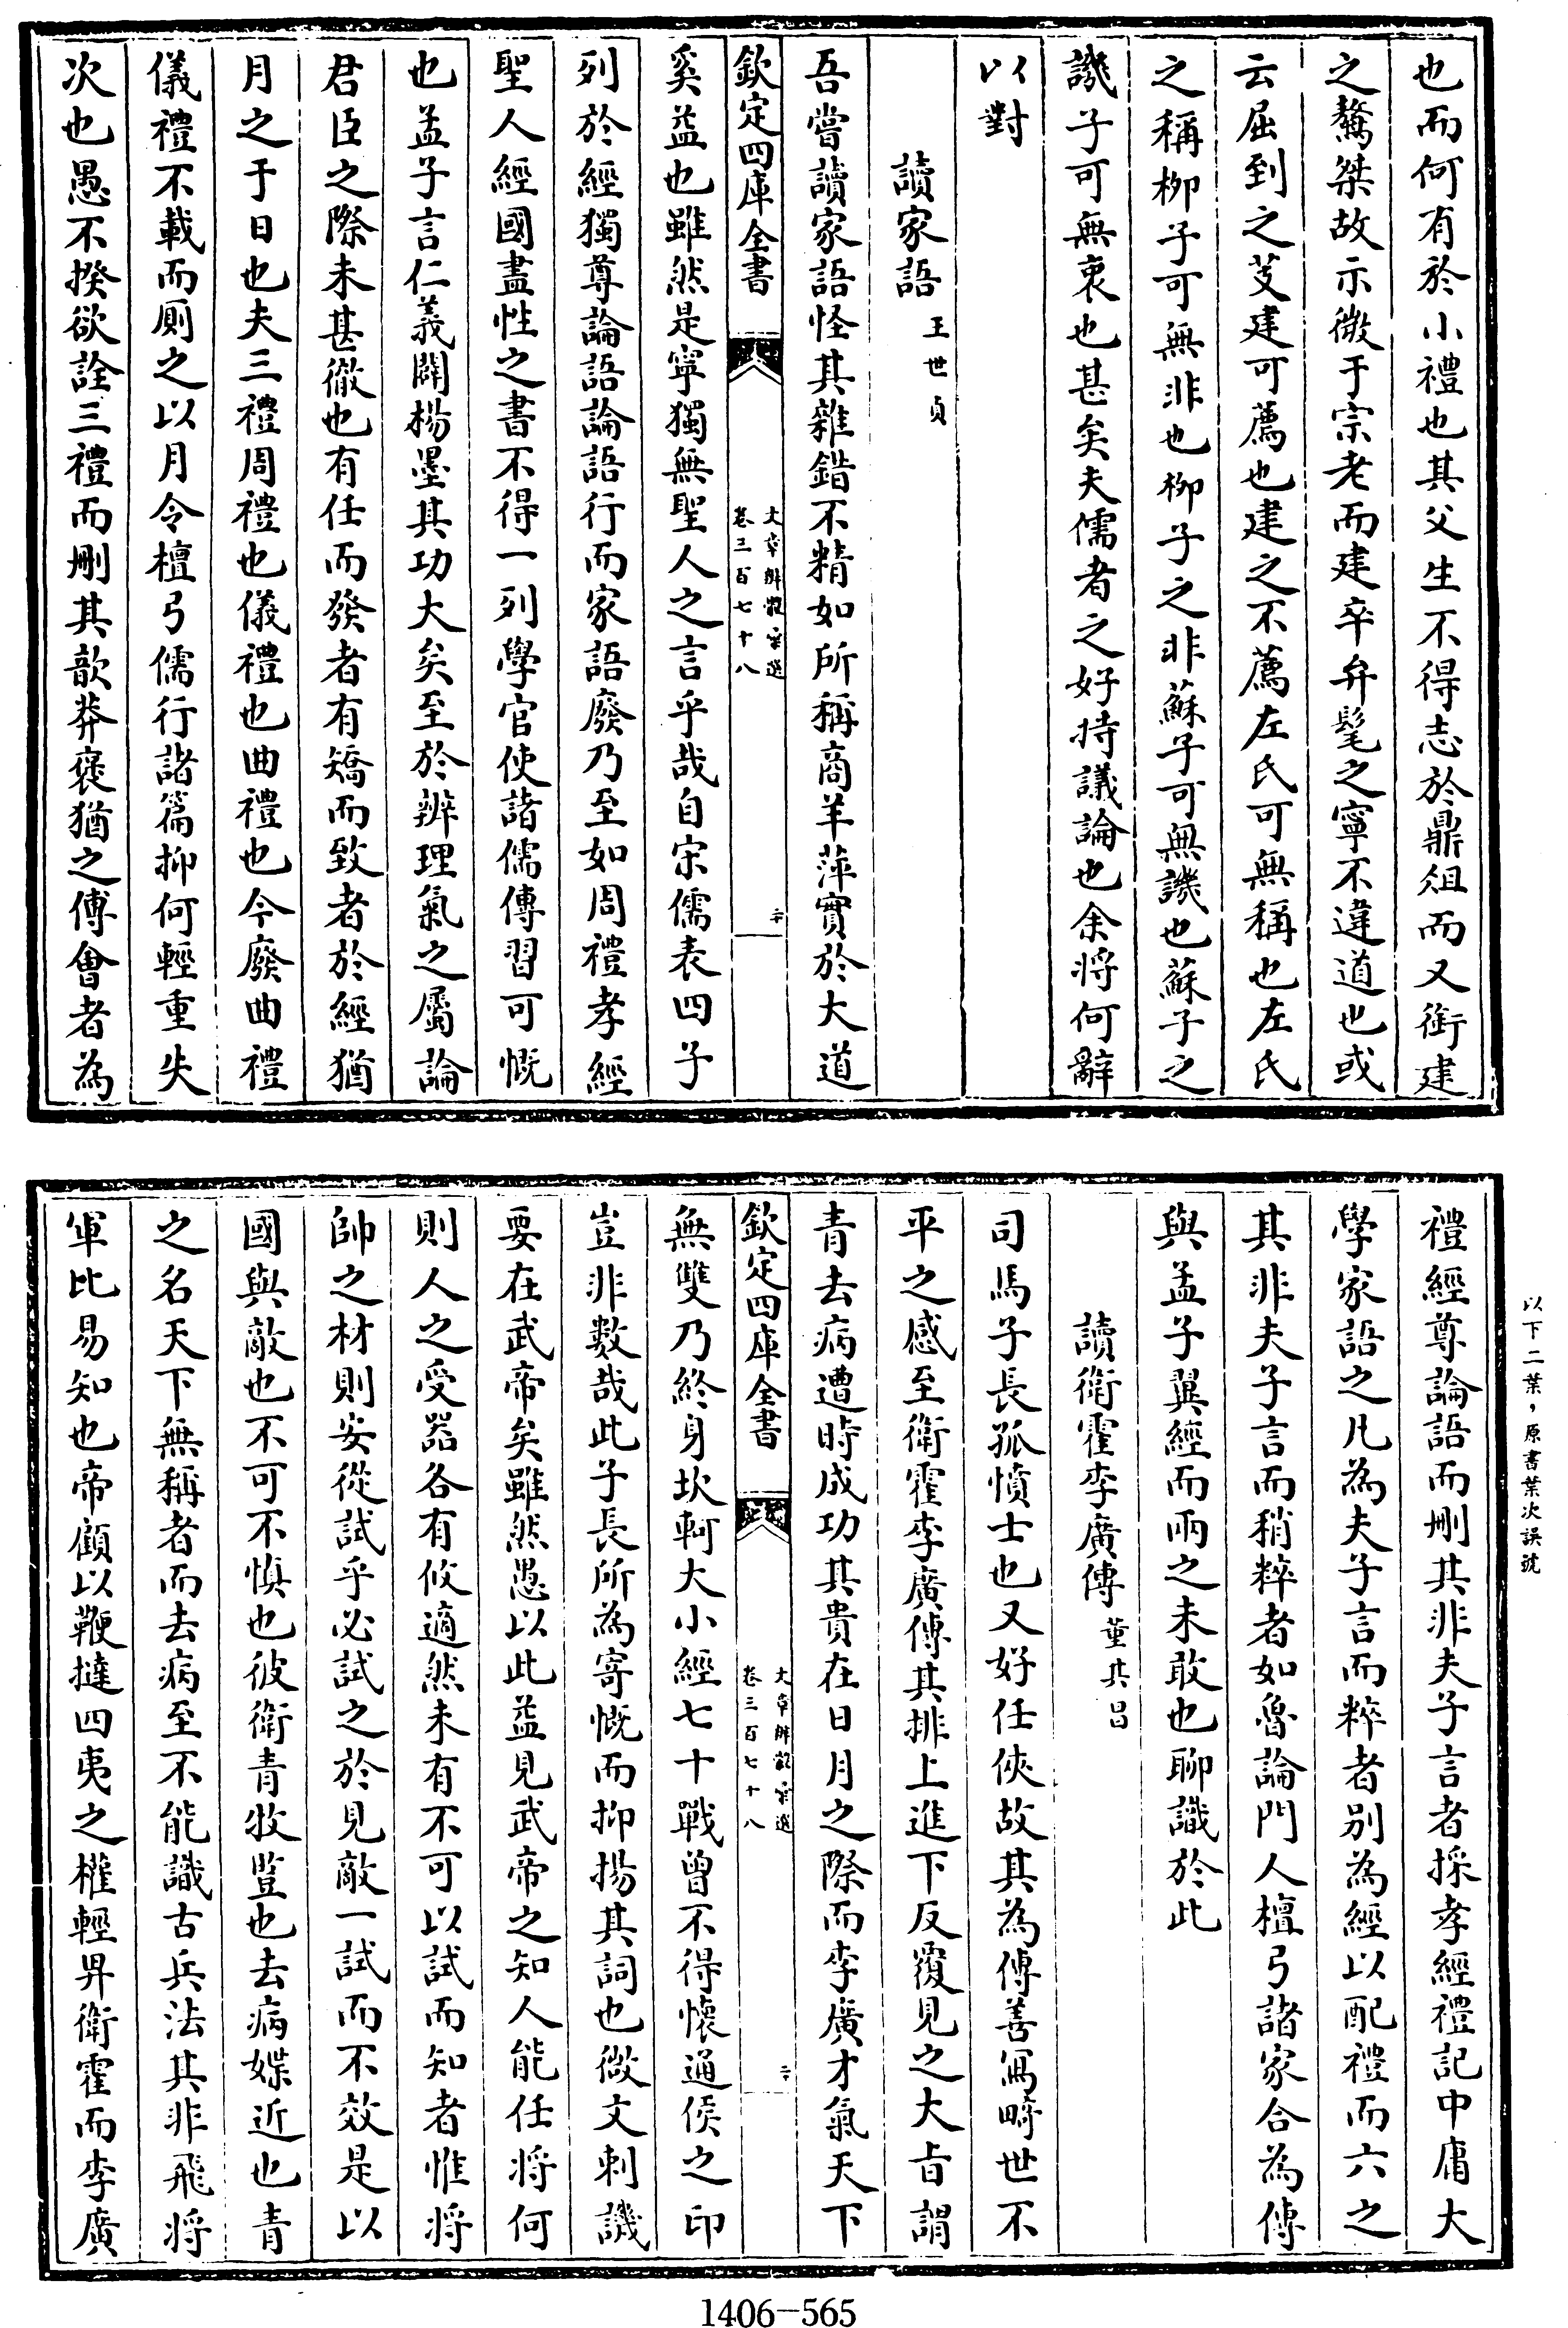 也而何有於小禮也其父生不得志於鼎俎而又銜建
之驁桀故示微于宗老而建卒弁髦之寧不違道也或
云屈到之芰建可薦也建之不薦左氏可無稱也左氏
之稱柳子可無非也柳子之非蘇子可無譏也蘇子之
譏子可無衷也甚矣夫儒者之好持議論也余將何辭
以對
讀家語 王世貞
吾嘗讀家語怪其雜錯不精如所稱商羊萍實於大道
欽定四庫全書
文章辨體彙選
卷三百七十八
二十
奚益也雖然是寧獨無聖人之言乎哉自宋儒表四子
列於經獨尊論語論語行而家語廢乃至如周禮孝經
聖人經國盡性之書不得一列學官使諸儒傳習可慨
也孟子言仁義闢楊墨其功大矣至於辨理氣之屬論
君臣之際未甚徹也有任而發者有矯而致者於經猶
月之于日也夫三禮周禮也儀禮也曲禮也今廢曲禮
儀禮不載而厠之以月令檀弓儒行諸篇抑何輕重失
次也愚不揆欲詮三禮而刪其歆莽褒猶之傅會者為
禮經尊論語而刪其非夫子言者採孝經禮記中庸大
學家語之凡為夫子言而粹者别為經以配禮而六之
其非夫子言而稍粹者如魯論門人檀弓諸家合為傳
與孟子翼經而兩之未敢也聊識於此
讀衛霍李廣傳 董其昌
司馬子長孤憤士也又好任俠故其為傳善寫畸世不
平之感至衛霍李廣傳其排上進下反覆見之大旨謂
青去病遭時成功其貴在日月之際而李廣才氣天下
欽定四庫全書
文章辨體彙選
卷三百七十八
二十
無雙乃終身坎軻大小經七十戰曾不得懷通侯之印
豈非數哉此子長所為寄慨而抑揚其詞也微文刺譏
要在武帝矣雖然愚以此益見武帝之知人能任將何
則人之受器各有攸適然未有不可以試而知者惟將
帥之材則安從試乎必試之於見敵一試而不效是以
國與敵也不可不慎也彼衛青牧豎也去病媟近也青
之名天下無稱者而去病至不能識古兵法其非飛將
軍比易知也帝顧以鞭撻四夷之權輕畀衛霍而李廣
以下二葉，原書葉次誤號
1406-565